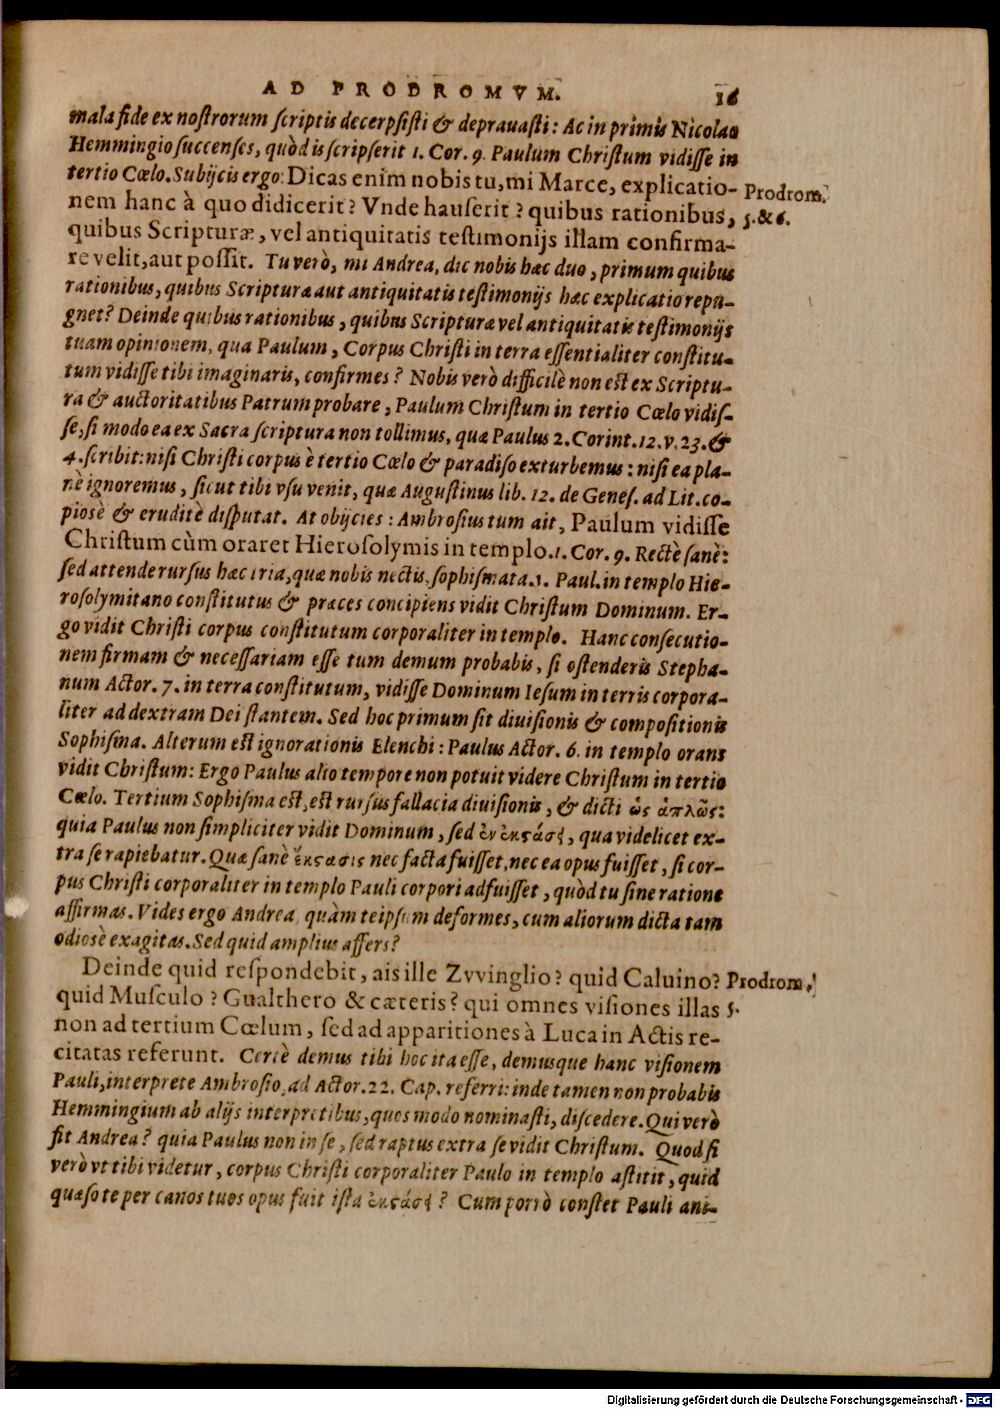 AD PRODROMVM. 16
mala fide ex nostrorum scriptis decerpsisti & deprauasti: Ac in primis Nicolao
Hemmingio succenses, quòd is scripserit 1. Cor. 9. Paulum Christum vidisse in
tertio Cœlo. Subijcis ergo: Dicas enim nobis tu, mi Marce, explicatio-
Prodrom.
nem hanc à quo didicerit? Vnde hauserit? quibus rationibus,
5. & 6.
quibus Scripturæ, vel antiquitatis testimonijs illam confirma-
re velit, aut possit. Tu verò, mi Andrea, dic nobis hæc duo, primum quibus
rationibus, quibus Scripturæ aut antiquitatis testimonijs hæc explicatio repu-
gnet? Deinde quibus rationibus, quibus Scripturæ vel antiquitatis testimonijs
tuam opinionem, qua Paulum, Corpus Christi in terra essentialiter constitu-
tum vidisse tibi imaginaris, confirmes? Nobis verò difficilè non est ex Scriptu-
ra & auctoritatibus Patrum probare, Paulum Christum in tertio Cœlo vidis-
se, si modo ea ex Sacra scriptura non tollimus, quæ Paulus 2. Corint. 12. v. 23. &
4. scribit: nisi Christi corpus è tertio Cœlo & paradiso exturbemus: nisi ea pla-
nè ignoremus, sicut tibi vsu venit, quæ Augustinus lib. 12. de Genes. ad Lit. co-
piosè & eruditè disputat. At obijcies: Ambrosius tum ait, Paulum vidisse
Christum cùm oraret Hierosolymis in templo. 1. Cor. 9. Rectè sanè:
sed attende rursus hæc tria, quæ nobis nectis, sophismata. 1. Paul. in templo Hie-
rosolymitano constitutus & præces concipiens vidit Christum Dominum. Er-
go vidit Christi corpus constitutum corporaliter in templo. Hanc consecutio-
nem firmam & necessariam esse tum demum probabis, si ostenderis Stepha-
num Actor. 7. in terra constitutum, vidisse Dominum Iesum in terris corpora-
liter ad dextram Dei stantem. Sed hoc primum sit diuisionis & compositionis
Sophisma. Alterum est ignorationis Elenchi: Paulus Actor. 6. in templo orans
vidit Christum: Ergo Paulus alio tempore non potuit videre Christum in tertio
Cœlo. Tertium Sophisma est, est rursus fallacia diuisionis, & dicti ὡς ἁπλῶς:
quia Paulus non simpliciter vidit Dominum, sed ἐν ἐκςάσι, qua videlicet ex-
tra se rapiebatur. Quæ sanè ἔκςασις nec facta fuisset, nec ea opus fuisset, si cor-
pus Christi corporaliter in templo Pauli corpori adfuisset, quòd tu sine ratione
affirmas. Vides ergo Andrea quàm teipsum deformes, cum aliorum dicta tam
odiosè exagitas. Sed quid amplius affers?
Deinde quid respondebit, ais ille Zvvinglio? quid Caluino?
Prodrom.
quid Musculo? Gualthero & cæteris? qui omnes visiones illas
5.
non ad tertium Cœlum, sed ad apparitiones à Luca in Actis re-
citatas referunt. Certè demus tibi hoc ita esse, demusque hanc visionem
Pauli, interprete Ambrosio, ad Actor. 22. Cap. referri: inde tamen non probabis
Hemmingium ab alijs interpretibus, quos modo nominasti, discedere. Qui verò
fit Andrea? quia Paulus non in se, sed raptus extra se vidit Christum. Quod si
verò vt tibi videtur, corpus Christi corporaliter Paulo in templo astitit, quid
quæso te per canos tuos opus fuit ista ἐκςάσι? Cum porrò constet Pauli ani-
Digitalisierung gefördert durch die Deutsche Forschungsgemeinschaft - DFG